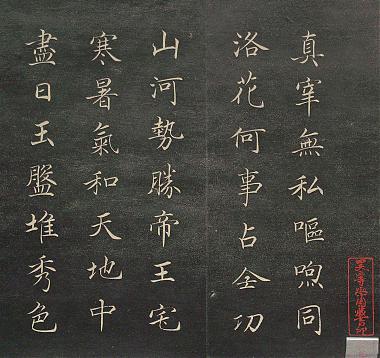 真宰無私嘔煦同
洛花何事占全功
山河勢勝帝王宅
寒暑氣和天地中
盡日玉盤堆秀色